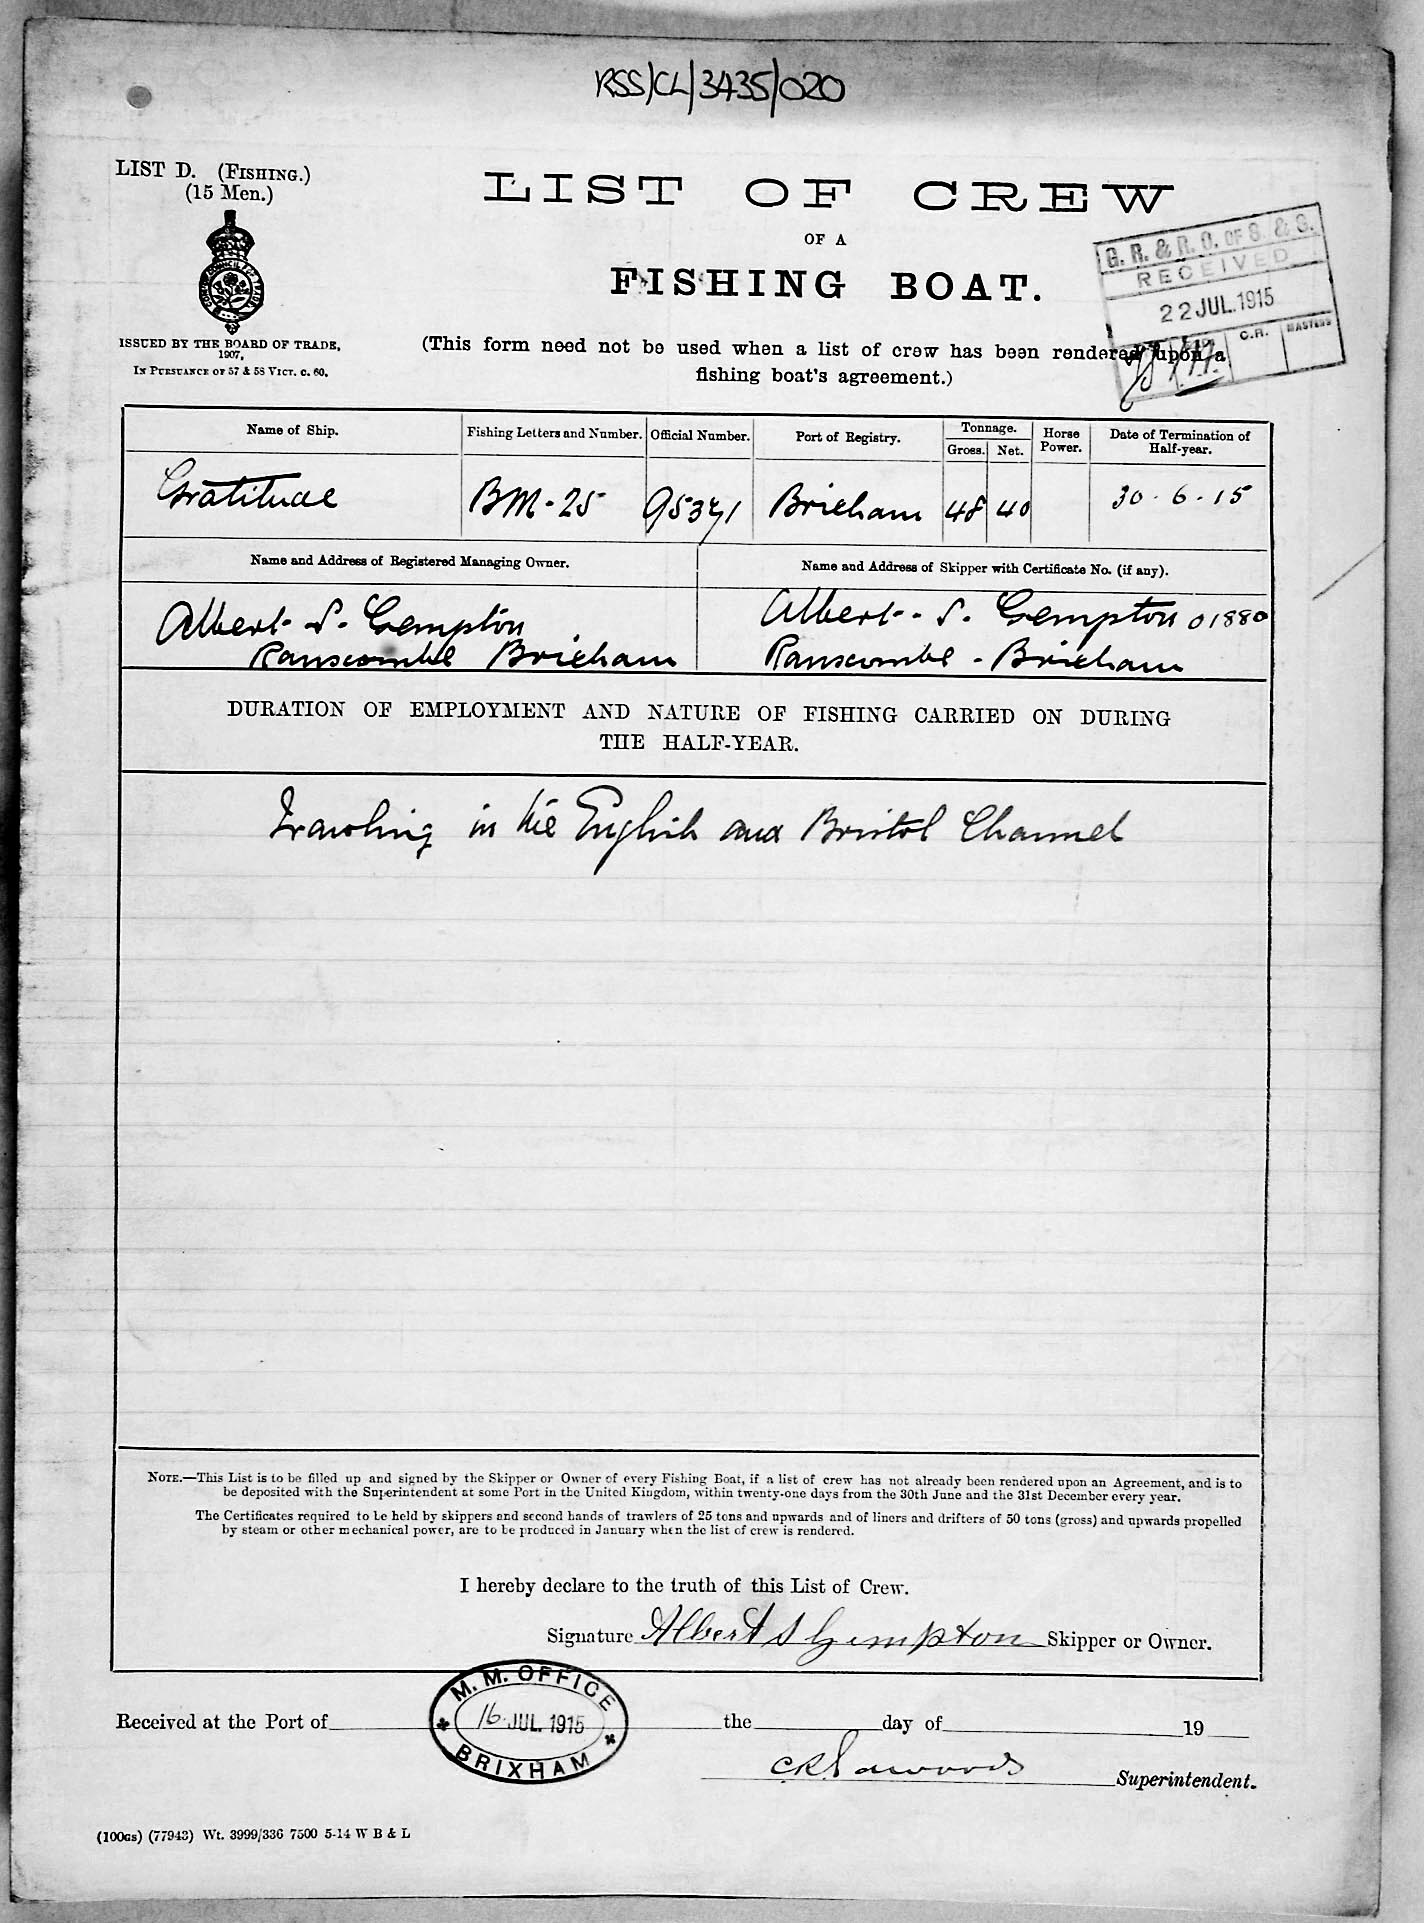 RSS/CL/3435/020
LIST D. (FISHING.)
(15 Men.)
ISSUED BY THE BOARD OF TRADE,
1907,
IN PURSUANCE OF 57 & 58 VICT. C. 60.
LIST OF CREW
OF A
FISHING BOAT.
(This form need not be used when a list of crew has been rendered upon a
fishing boat's agreement.)
G. R. & R. O. OF S. & S.
RECEIVED
22 JUL. 1915
C.R.
MASTERS
Name of Ship.
Fishing Letters and Number.
Official Number.
Port of Registry.
Tonnage.
Gross.
Net.
Horse Power.
Date of Termination of Half-year.
Gratitude
BM-25
95371
Brixham
48
40
30.6.15
Name and Address of Registered Managing Owner.
Name and Address of Skipper with Certificate No. (if any).
Albert. S. Gempton
Ranscombe Brixham
Albert. S. Gempton 01880
Ranscombe - Brixham
DURATION OF EMPLOYMENT AND NATURE OF FISHING CARRIED ON DURING
THE HALF-YEAR.
Trawling in the English and Bristol Channel
NOTE.—This List is to be filled up and signed by the Skipper or Owner of every Fishing Boat, if a list of crew has not already been rendered upon an Agreement, and is to
be deposited with the Superintendent at some Port in the United Kingdom, within twenty-one days from the 30th June and the 31st December every year.
The Certificates required to be held by skippers and second hands of trawlers of 25 tons and upwards and of liners and drifters of 50 tons (gross) and upwards propelled
by steam or other mechanical power, are to be produced in January when the list of crew is rendered.
I hereby declare to the truth of this List of Crew.
Signature Albert S Gempton Skipper or Owner.
M. M. OFFICE
16 JUL. 1915
BRIXHAM
Received at the Port of the day of 19
Superintendent.
(100GS) (77943) Wt. 3999/336 7500 5-14 W B & L